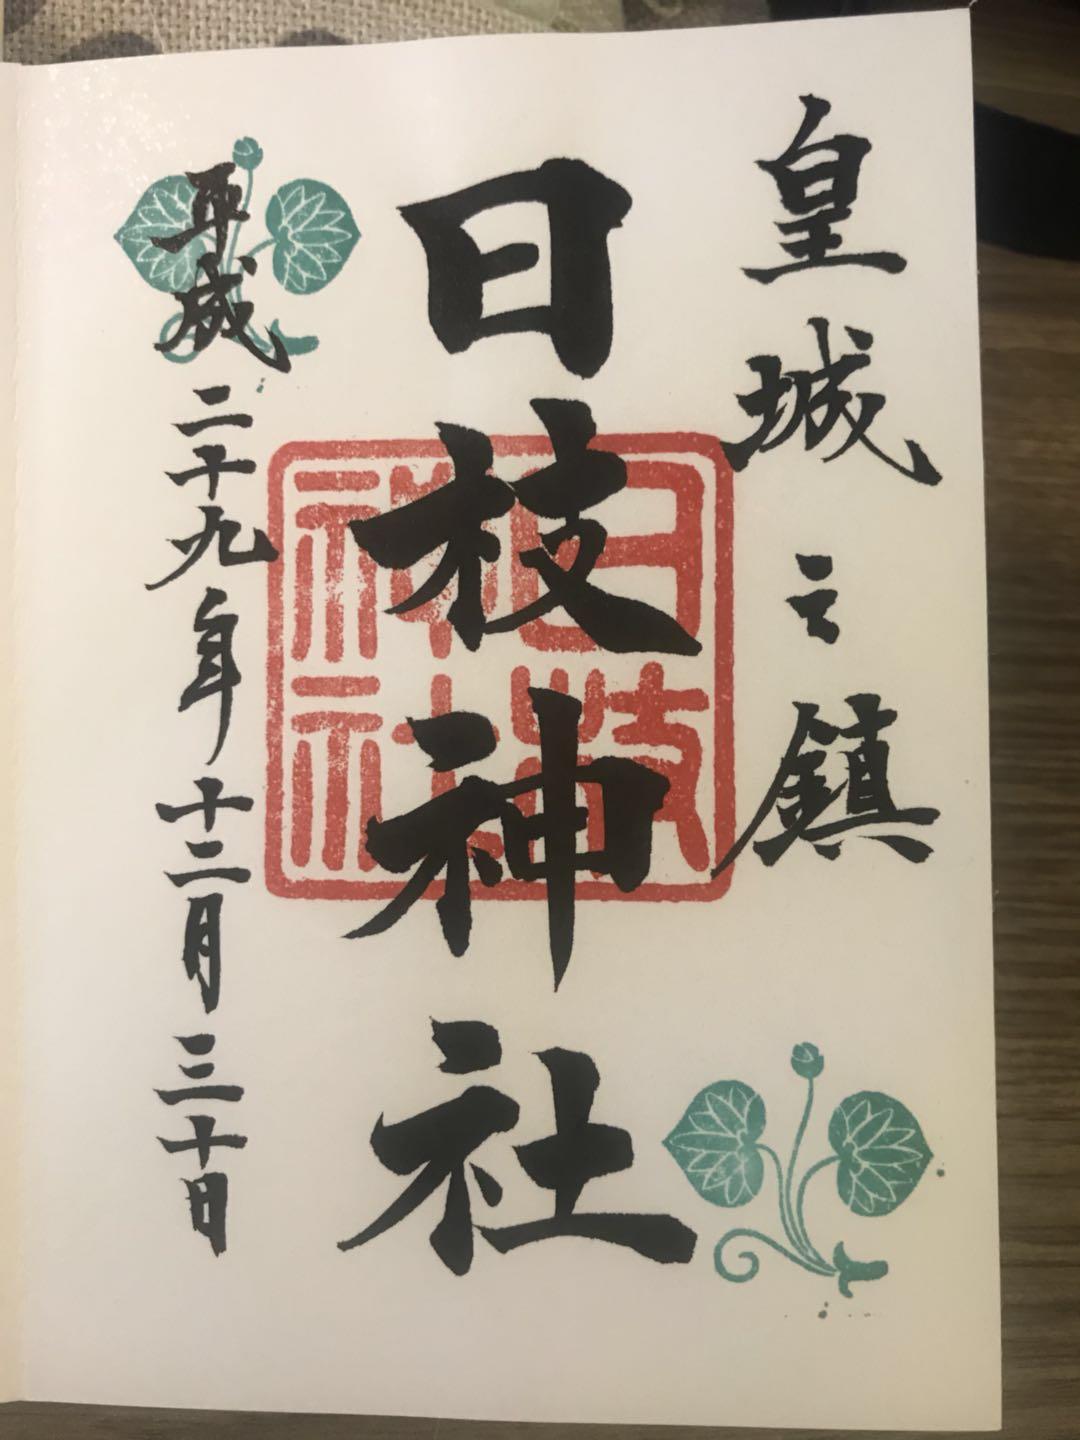 皇城之鎮
日枝神社
日枝神社
平成二十九年十二月三十日